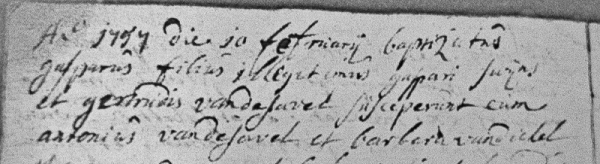 A.o 1757 die 10 februarij baptizatus
gasparus filius illegitimus gaspari
et gertrudis vandesavel susceperunt eum
antonius vandesavel et barbara